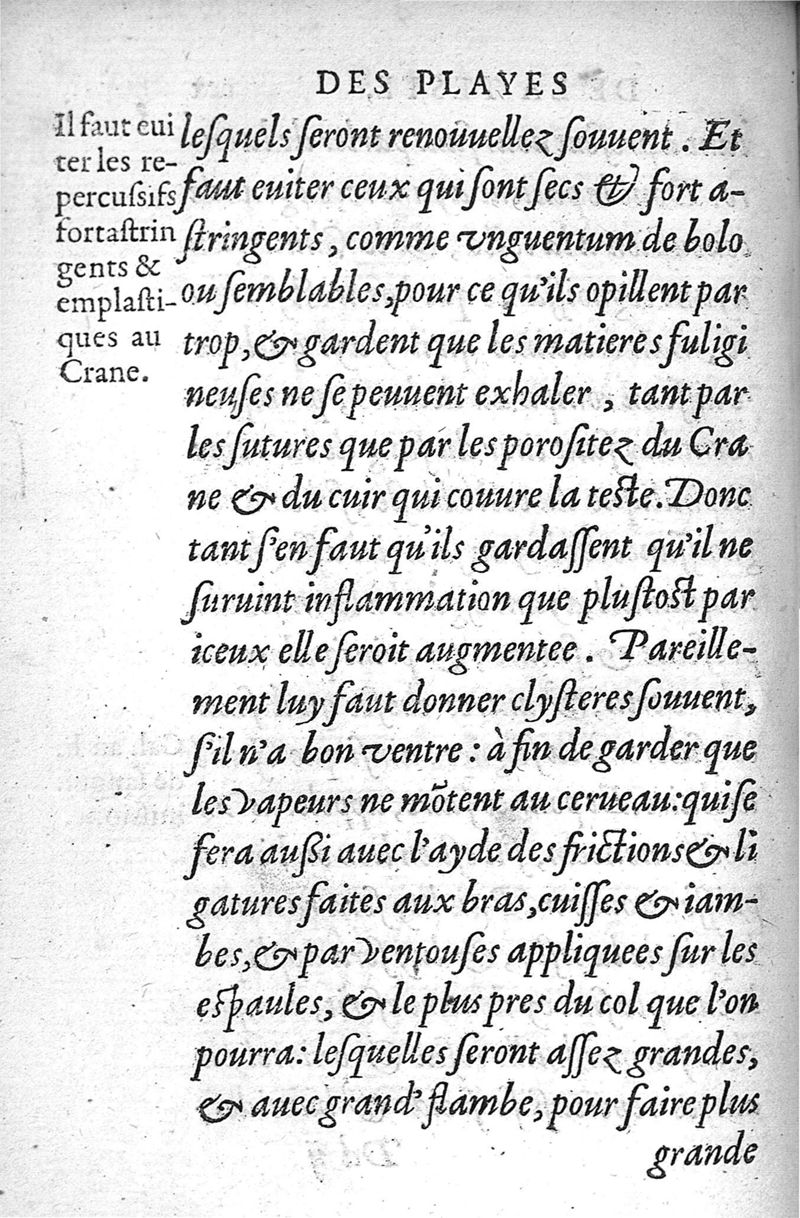 DES PLAYES
Il faut eui
ter les re-
percuſsifs
fort aſtrin
gents &
emplaſti-
ques au
Crane.
leſquels ſeront renouuellez ſouuent. Et
faut euiter ceux qui ſont ſecs & fort a-
ſtringents, comme vnguentum de bolo
ou ſemblables, pour ce qu'ils opillent par
trop, & gardent que les matieres fuligi
neuſes ne ſe peuuent exhaler, tant par
les ſutures que par les poroſitez du Cra
ne & du cuir qui couure la teſte. Donc
tant ſ'en faut qu'ils gardaſſent qu'il ne
ſuruint inflammation que pluſtoſt par
iceux elle ſeroit augmentee. Pareille-
ment luy faut donner clyſteres ſouuent,
ſ'il n'a bon ventre: à fin de garder que
les vapeurs ne mõtent au cerueau: qui ſe
fera auſsi auec l'ayde des frictions & li
gatures faites aux bras, cuiſſes & iam-
bes, & par ventouſes appliquees ſur les
eſpaules, & le plus pres du col que l'on
pourra: leſquelles ſeront aſſez grandes,
& auec grand' flambe, pour faire plus
grande